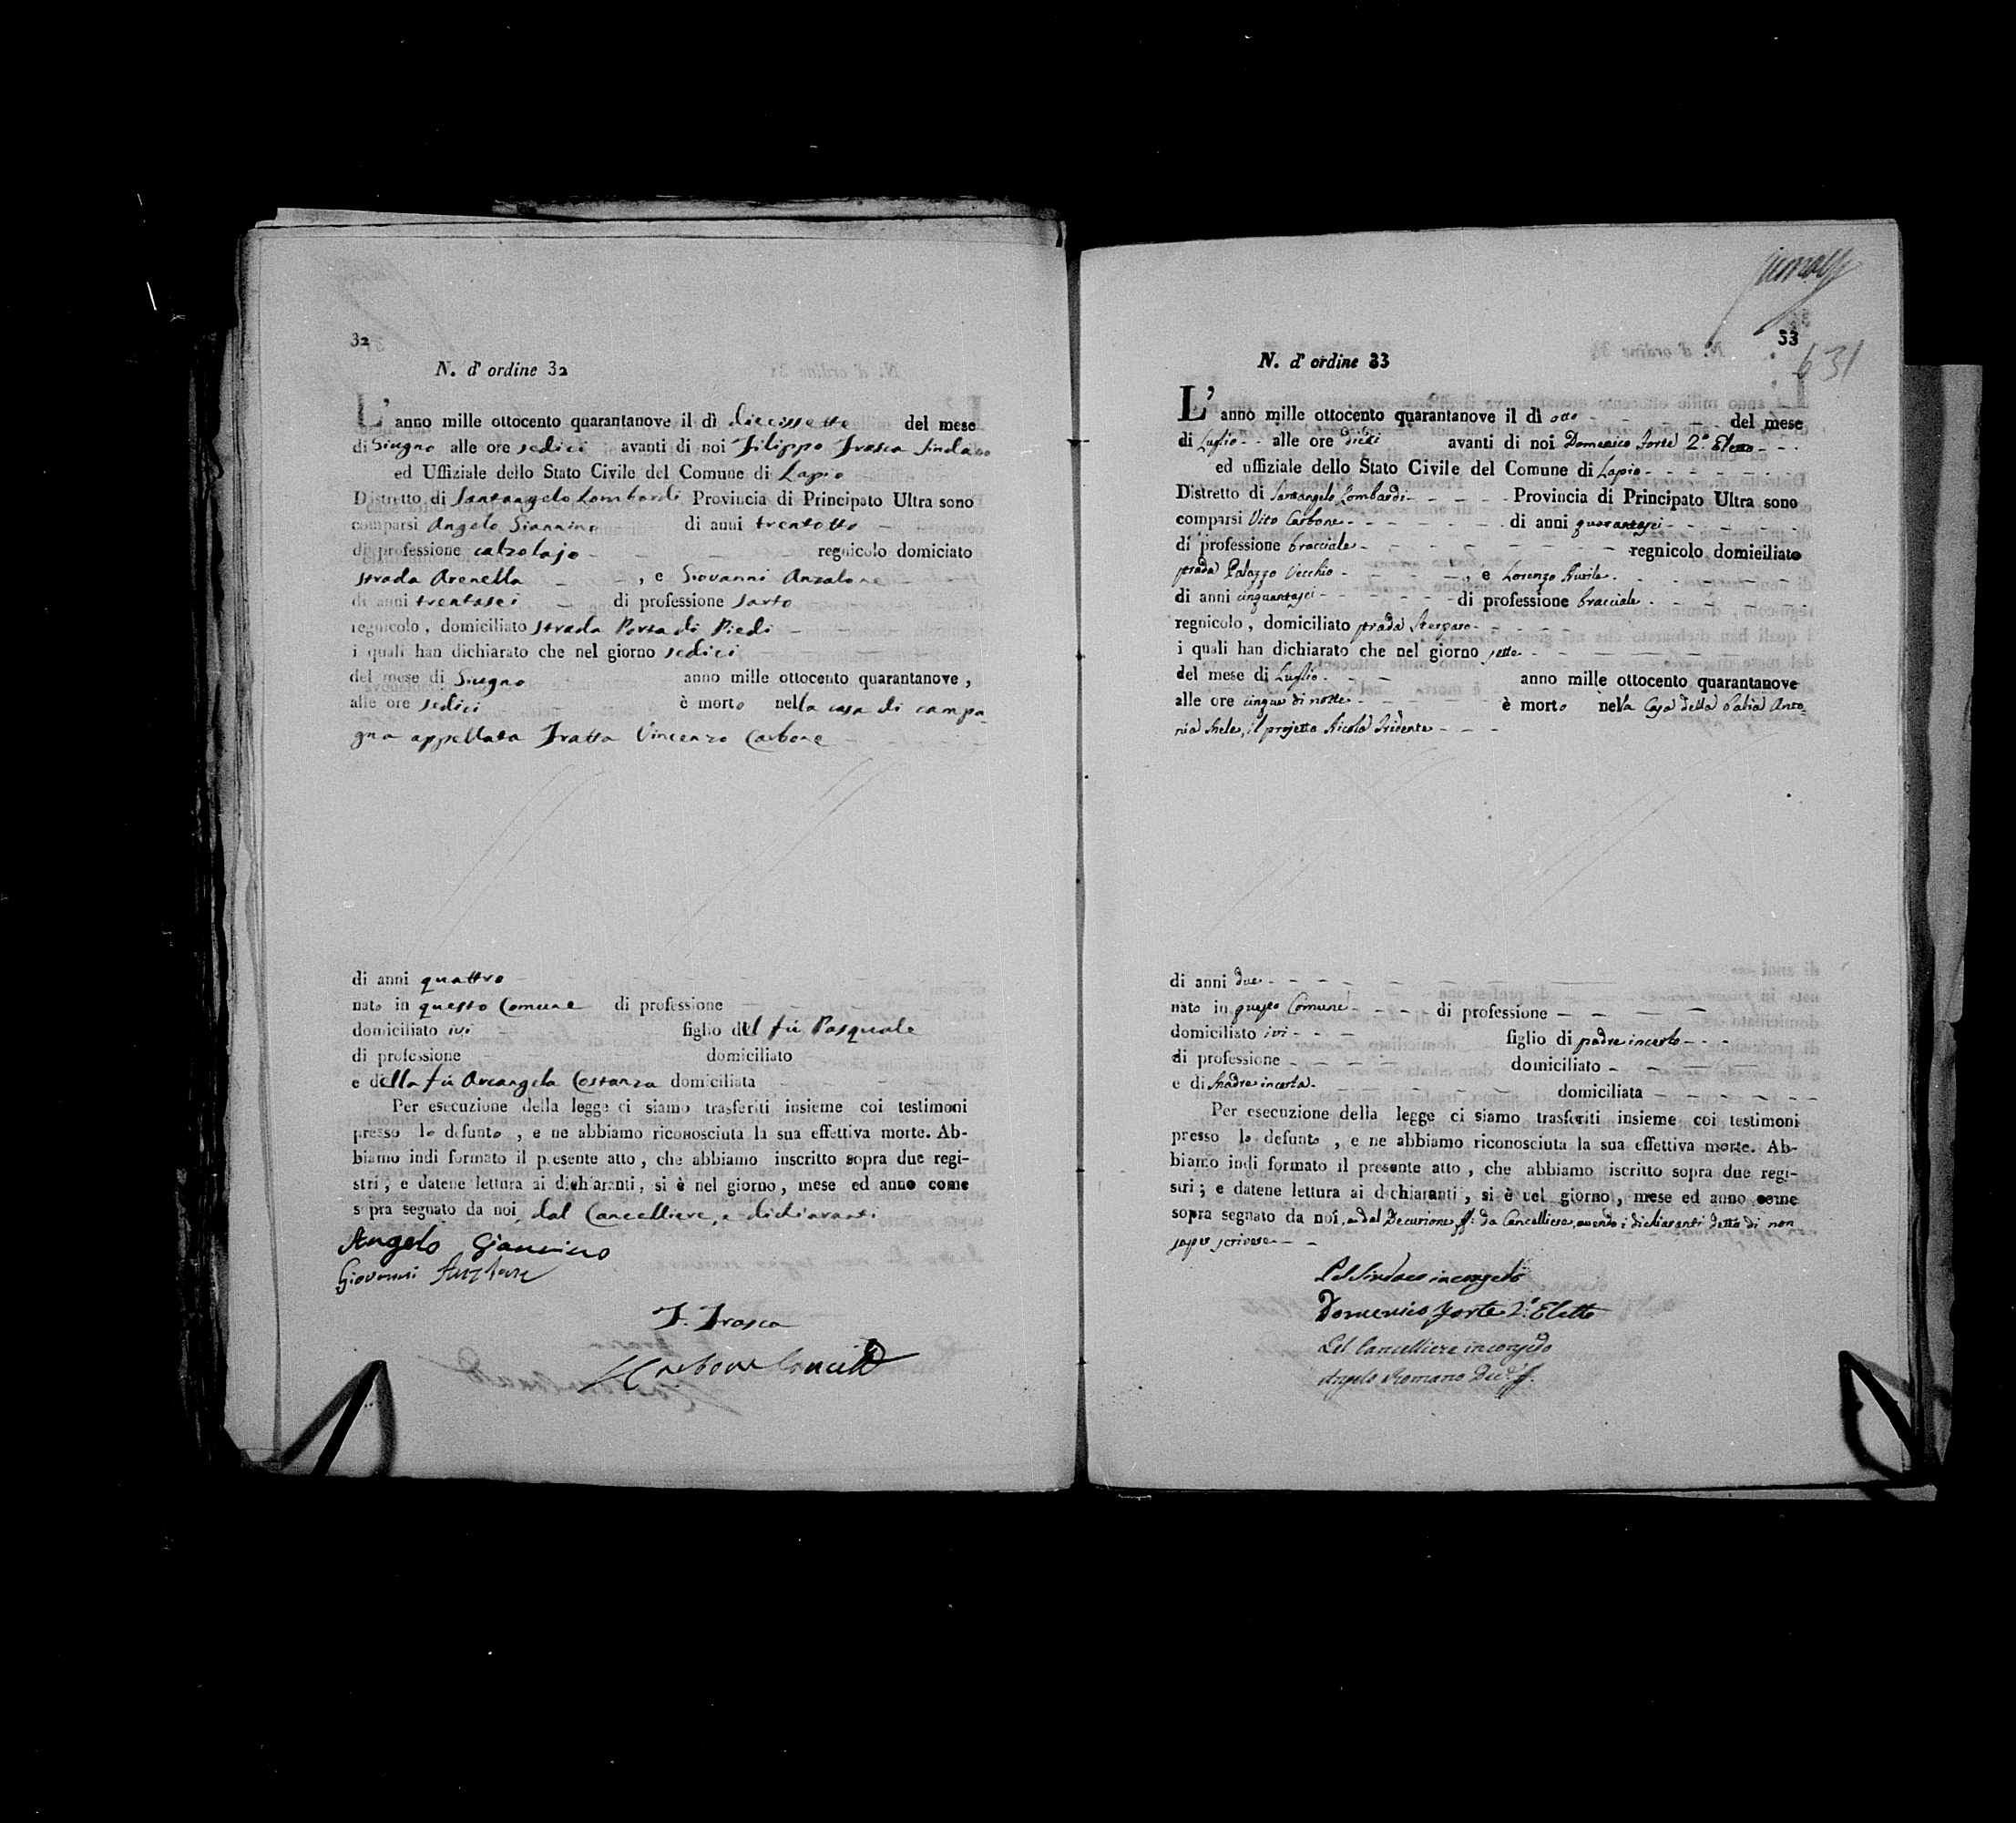 32
N. d' ordine 32
L' anno mille ottocento quarantanove il dì diecissette del mese
di Giugno alle ore sedici avanti di noi Filippo Frasca Sindaco
ed Uffiziale dello Stato Civile del Comune di Lapio
Distretto di Santangelo Lombardi Provincia di Principato Ultra sono
comparsi Angelo Giannino di anni trentotto
di professione calzolajo regnicolo domiciato
strada Arenella , e Giovanni Anzalone
di anni trentasei di professione sarto
regnicolo, domiciliato strada Porta di Piedi
i quali han dichiarato che nel giorno sedici
del mese di Giugno anno mille ottocento quarantanove,
alle ore sedici è morto nella casa di campa-
gna appellata Fratta Vincenzo Carbone
di anni quattro
nato in questo Comune di professione
domiciliato ivi figlio del fù Pasquale
di professione domiciliato
e della fù Arcangela Costanza domiciliata
Per esecuzione della legge ci siamo trasferiti insieme coi testimoni
presso lo defunto, e ne abbiamo riconosciuta la sua effettiva morte. Ab-
biamo indi formato il presente atto, che abbiamo inscritto sopra due regi-
stri; e datene lettura ai dichiaranti, si è nel giorno, mese ed anno come
sopra segnato da noi, dal Cancelliere, e dichiaranti
Angelo Giannino
Giovanni Anzalone
F. Frasca
Carbone
33
631
N. d' ordine 33
L' anno mille ottocento quarantanove il dì otto del mese
di Luglio alle ore dieci avanti di noi Domenico Forte 2.° Eletto
ed uffiziale dello Stato Civile del Comune di Lapio
Distretto di Santangelo Lombardi Provincia di Principato Ultra sono
comparsi Vito Carbone di anni quarantasei
di professione bracciale regnicolo domieiliato
strada Palazzo Vecchio , e Lorenzo
di anni cinquantasei di professione bracciale
regnicolo, domiciliato strada
i quali han dichiarato che nel giorno sette
del mese di Luglio anno mille ottocento quarantanove
alle ore cinque di notte è morto nella Casa della Balia Anto-
nia il projetto Nicola Tridente
di anni due
nato in questo Comune di professione
domiciliato ivi figlio di padre incerto
di professione domiciliato
e di Madre incerta domiciliata
Per esecuzione della legge ci siamo trasferiti insieme coi testimoni
presso lo defunto, e ne abbiamo riconosciuta la sua effettiva morte. Ab-
biamo indi formato il presente atto, che abbiamo iscritto sopra due regi-
stri; e datene lettura ai dichiaranti, si è nel giorno, mese ed anno come
sopra segnato da noi, e dal Decurione ff: da Cancelliere, avendo i dichiaranti detto di non
saper scrivere
Pel Sindaco in congedo
Domenico Forte 2.° Eletto
Pel Cancelliere in congedo
Angelo Romano Dec.e ff.